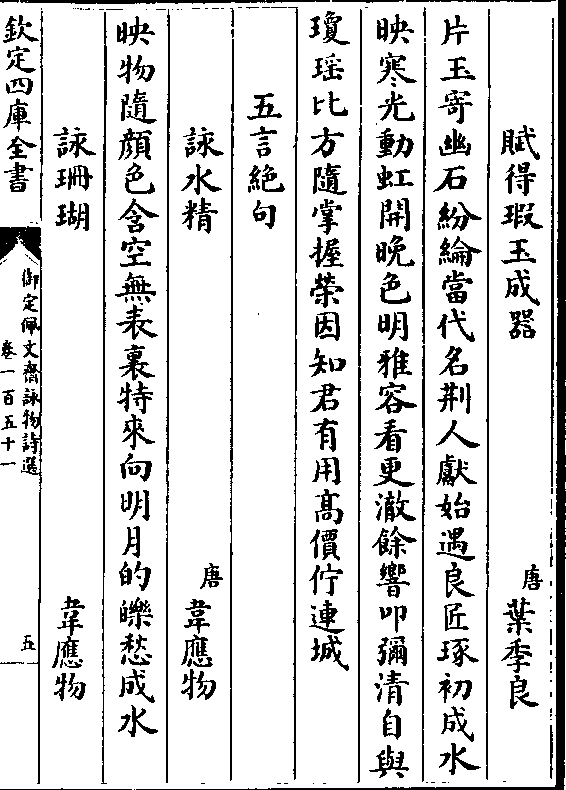 賦得瑕玉成器
唐葉季良
片玉寄幽石紛綸當代名荆人獻始遇良匠琢初成水
映寒光動虹開晚色明雅容看更澈餘響叩彌清自與
瓊瑶比方隨掌握榮因知君有用髙價佇連城
五言絶句
詠水精
唐韋應物
映物隨顔色含空無表裏特來向明月的皪愁成水
詠珊瑚
韋應物
欽定四庫全書
御定佩文齋詠物詩選
卷一百五十一
五